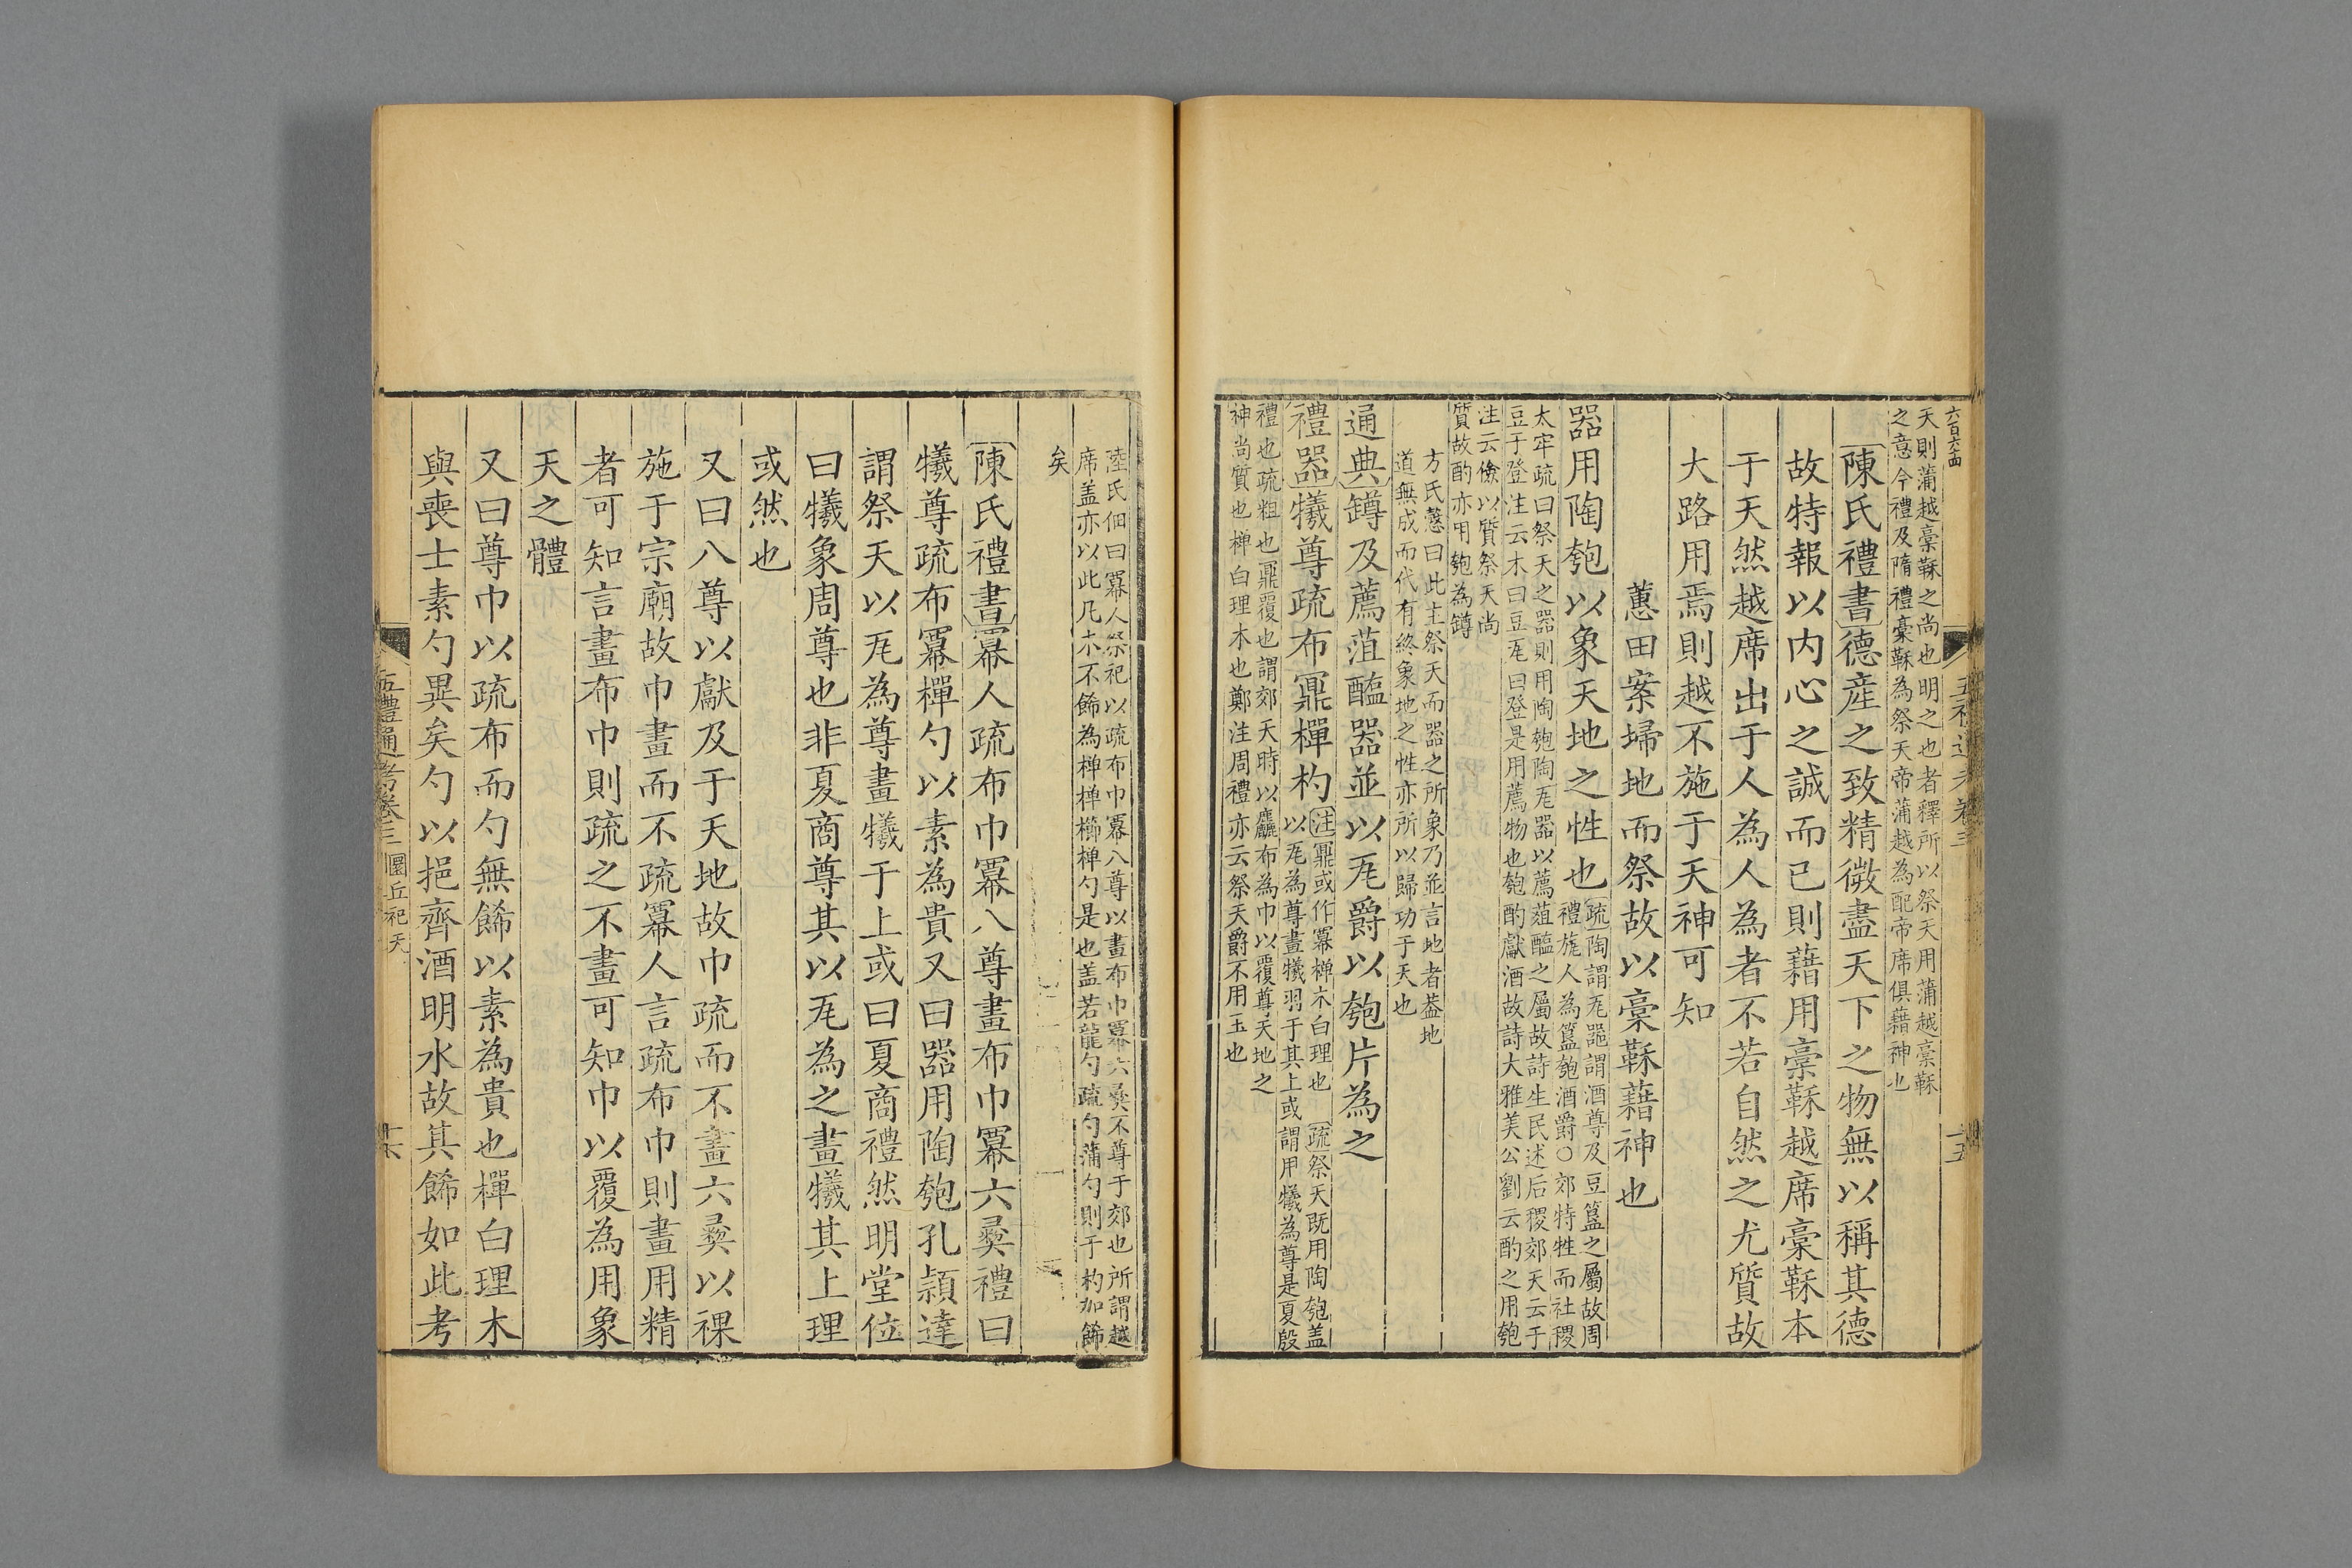 六百六十四
五禮通考卷三
十五
天則蒲越稾鞂之尚也明之也者釋所以祭天用蒲越稾鞂
之意今禮及隋禮稾鞂為祭天帝蒲越為配帝席俱藉神也
陳氏禮書德産之致精微盡天下之物無以稱其德
故特報以内心之誠而已則藉用稾鞂越席稾鞂本
于天然越席出于人為人為者不若自然之尤質故
大路用焉則越不施于天神可知
蕙田案埽地而祭故以稾鞂藉神也
器用陶匏以象天地之性也
疏陶謂瓦器謂酒尊及豆簋之屬故周
禮旊人為簋匏酒爵○郊特牲而社稷
太牢疏曰祭天之器則用陶匏陶瓦器以薦葅醢之屬故詩生民述后稷郊天云于
豆于登注云木曰豆瓦曰登是用薦物也匏酌獻酒故詩大雅美公劉云酌之用匏
注云儉以質祭天尚
質故酌亦用匏為罇
方氏慤曰此主祭天而器之所象乃並言地者葢地
道無成而代有終象地之性亦所以歸功于天也
通典罇及薦菹醢器並以瓦爵以匏片為之
禮器犧尊疏布鼏樿杓
注鼏或作冪樿木白理也 疏祭天既用陶匏盖
以瓦為尊畫犧羽于其上或謂用犧為尊是夏殷
禮也疏粗也鼏覆也謂郊天時以麤布為巾以覆尊天地之
神尚質也樿白理木也鄭注周禮亦云祭天爵不用玉也
陸氏佃曰冪人祭祀以疏布巾冪八尊以畫布巾冪六彝不尊于郊也所謂越
席盖亦以此凡木不餙為樿樿櫛樿勺是也盖若龍勺疏勺蒲勺則于杓加餙
矣
陳氏禮書冪人疏布巾冪八尊畫布巾冪六彝禮曰
犧尊疏布冪樿勺以素為貴又曰器用陶匏孔頴達
謂祭天以瓦為尊畫犧于上或曰夏商禮然明堂位
曰犧象周尊也非夏商尊其以瓦為之畫犧其上理
或然也
又曰八尊以獻及于天地故巾疏而不畫六彝以祼
施于宗廟故巾畫而不疏冪人言疏布巾則畫用精
者可知言畫布巾則疏之不畫可知巾以覆為用象
天之體
又曰尊巾以疏布而勺無餙以素為貴也樿白理木
與喪士素勺異矣勺以挹齊酒明水故其餙如此考
五禮通考卷三 圜丘祀天
十六